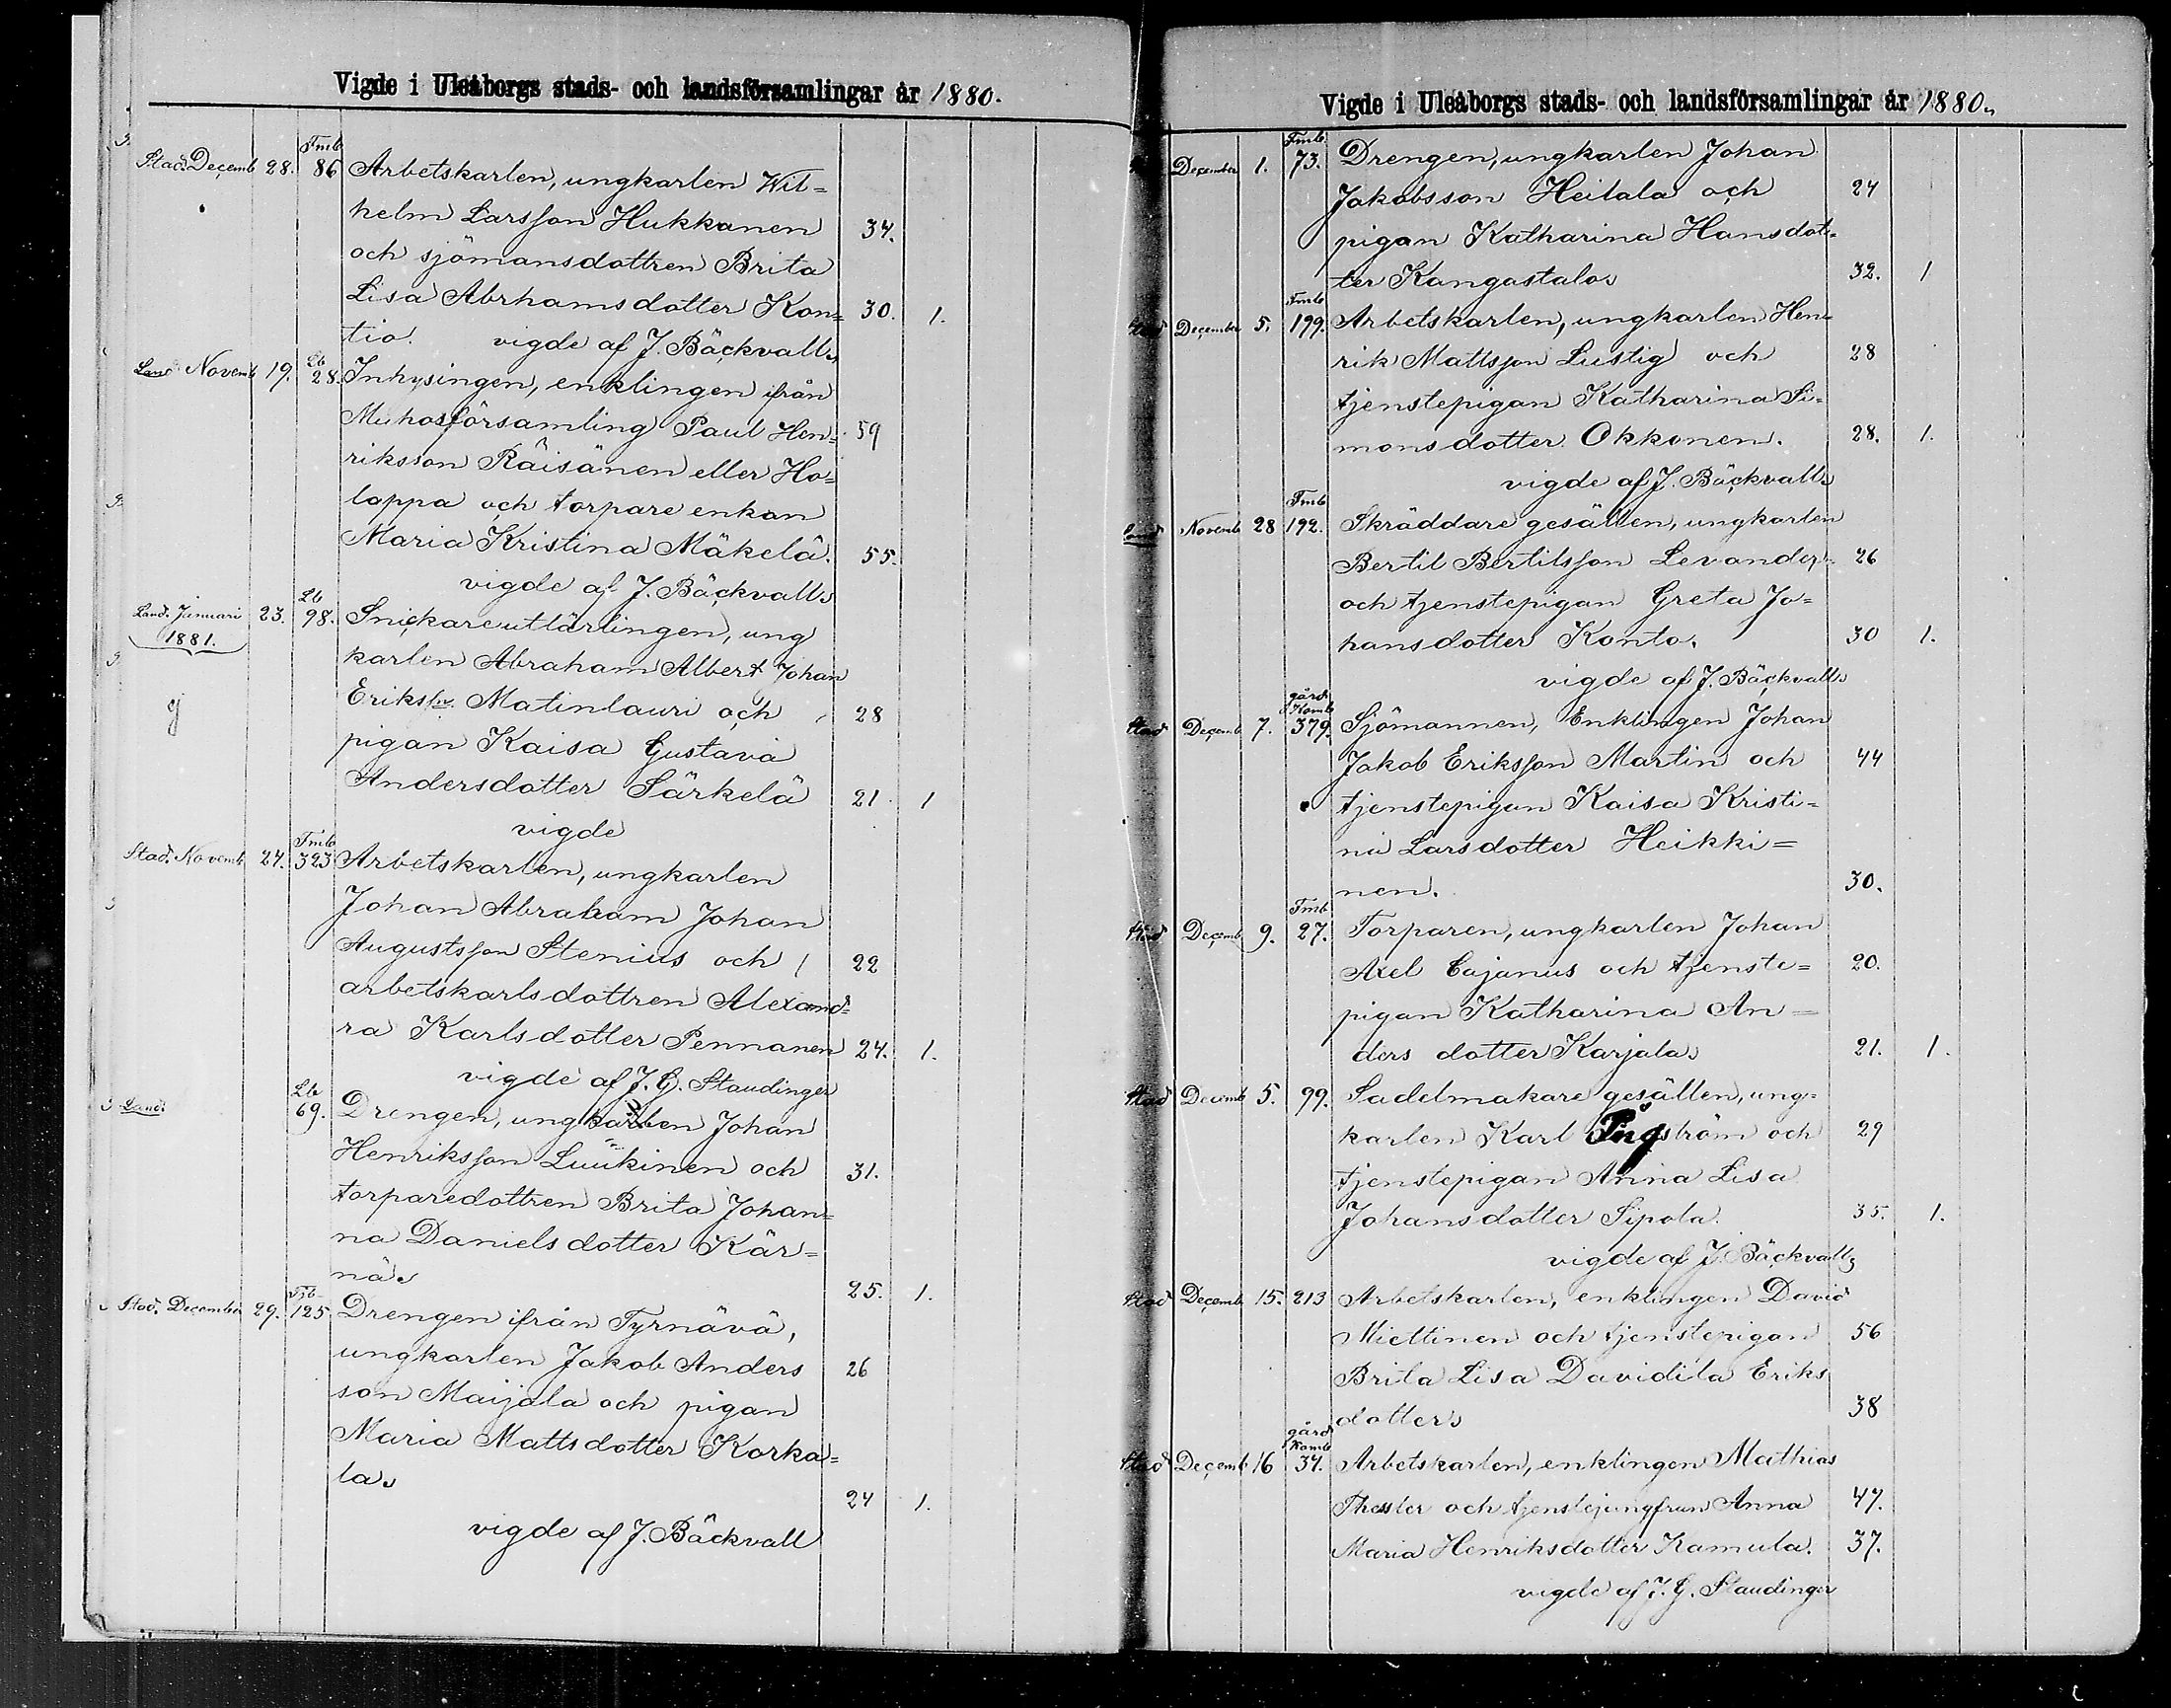 Vigde i Uleåborgs stads- och landsförsamlingar år 1880.
Fmb
Stad. Decemb 28. 86 Arbetskarlen, ungkarlen Wil=
helm Larsson Hukkanen 34.
och sjömansdottren Brita
Lisa Abrhamsdotter Kon= 30. 1.
tio. vigde af J. Bäckvall.
Lb
Land Novemb 19. 28. Inhysingen, enklingen ifrån
Muhos församling Paul Hen= 59
riksson Räisänen eller Ho=
lappa och torpare enkan
Maria Kristina Mäkelä. 55.
vigde af J. Bäckvall.
Lb
Land. Januari 23. 98. Snickareutlärlingen, ung
1881.
karlen Abraham Albert Johan
Eriksson Matinlauri och 28
pigan Kaisa Gustava
Andersdotter Särkelä 21. 1
vigde
Fmb
Stad. Novemb 24. 323 Arbetskarlen, ungkarlen
Johan Abraham Johan
Augustsson Stenius och 22
arbetskarlsdottren Alexand=
ra Karlsdotter Pennanen 24. 1.
vigde af J. G. Staudinger
Lb
Land. 69. Drengen, ungkarlen Johan
Henriksson Luukinen och 31.
torparedottren Brita Johan=
na Danielsdotter Kär=
nä. 25. 1.
Stad. December 29. 125 Drengen ifrån Tyrnävä,
ungkarlen Jakob Anders 26
son Maijala och pigan
Maria Mattsdotter Korka=
la. 24 1.
vigde af J. Bäckvall
Vigde i Uleåborgs stads- och landsförsamlingar år 1880.
Fmb
December 1. 73. Drengen, ungkarlen Johan
Jakobsson Heilala och 24
pigan Katharina Hansdot=
ter Kangastalo. 32. 1
Fmb
Stad December 5. 199. Arbetskarlen, ungkarlen Hen=
rik Mattsson Lustig och 28
tjenstepigan Katharina Si=
monsdotter Okkonen. 28. 1.
vigde af J. Bäckvall.
Fmb
Land Novemb 28 192. Skräddare gesällen, ungkarlen
Bertil Bertilsson Levander 26
och tjenstepigan Greta Jo=
hansdotter Konto. 30 1.
vigde af J. Bäckvall.
gård
Komb
Stad Decemb 7. 379. Sjömannen, Enklingen Johan
Jakob Eriksson Martin och 44
tjenstepigan Kaisa Kristi=
na Larsdotter Heikki=
nen. 30.
Fmb
Stad Decemb 9. 27. Torparen, ungkarlen Johan
Axel Cajanus och tjenste= 20.
pigan Katharina An=
dersdotter Karjala. 21. 1.
Stad Decemb 5. 99. Sadelmakare gesällen, ung=
karlen Karl Tingström och 29
tjenstepigan Anna Lisa
Johansdotter Sipola. 35. 1.
vigde af J. Bäckvall.
Stad Decemb 15. 213 Arbetskarlen, enklingen David
Miettinen och tjenstepigan 56
Brita Lisa Davidila Eriks
dotter. 38
gård
Komb
Stad Decemb 16 34. Arbetskarlen, enklingen Mathias
Thessler och tjenstejungfrun Anna 47.
Maria Henriksdotter Kamula. 37.
vigde af J. G. Staudinger